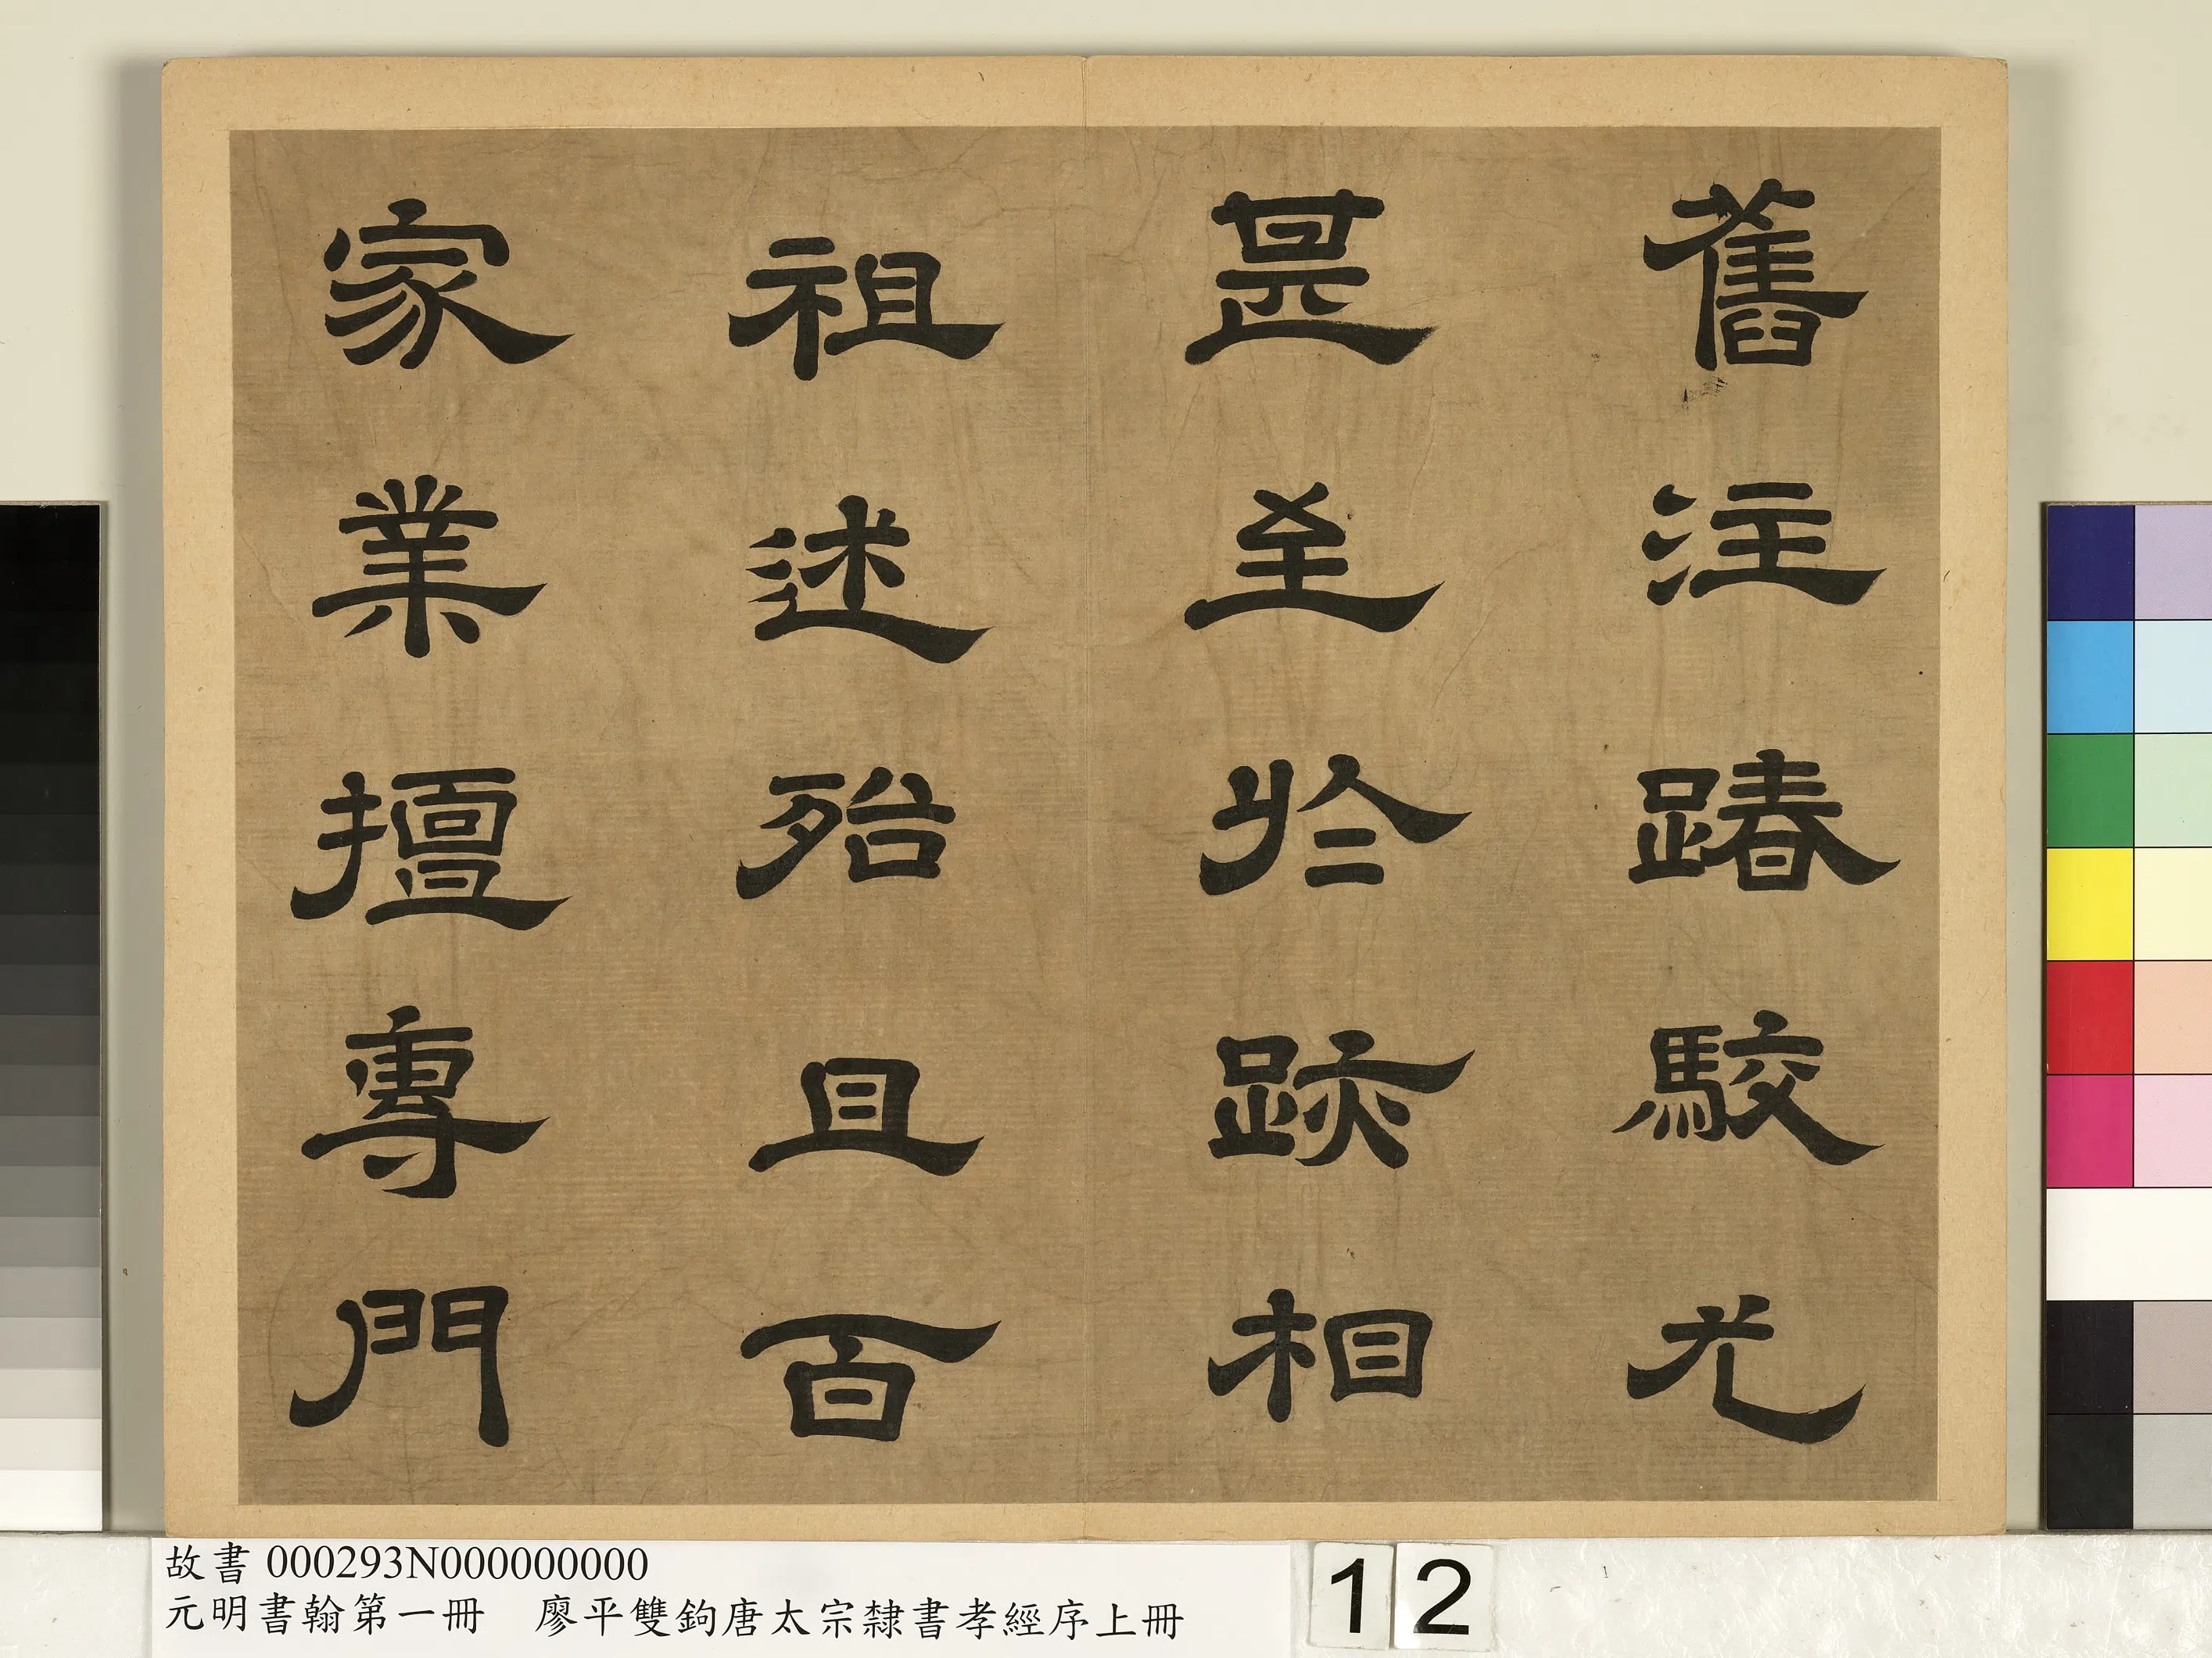 舊注踳駮尤
甚至於跡相
祖述殆且百
家業擅專門
故書 000293N000000000
元明書翰第一冊 廖平雙鉤唐太宗隸書孝經序上冊
12